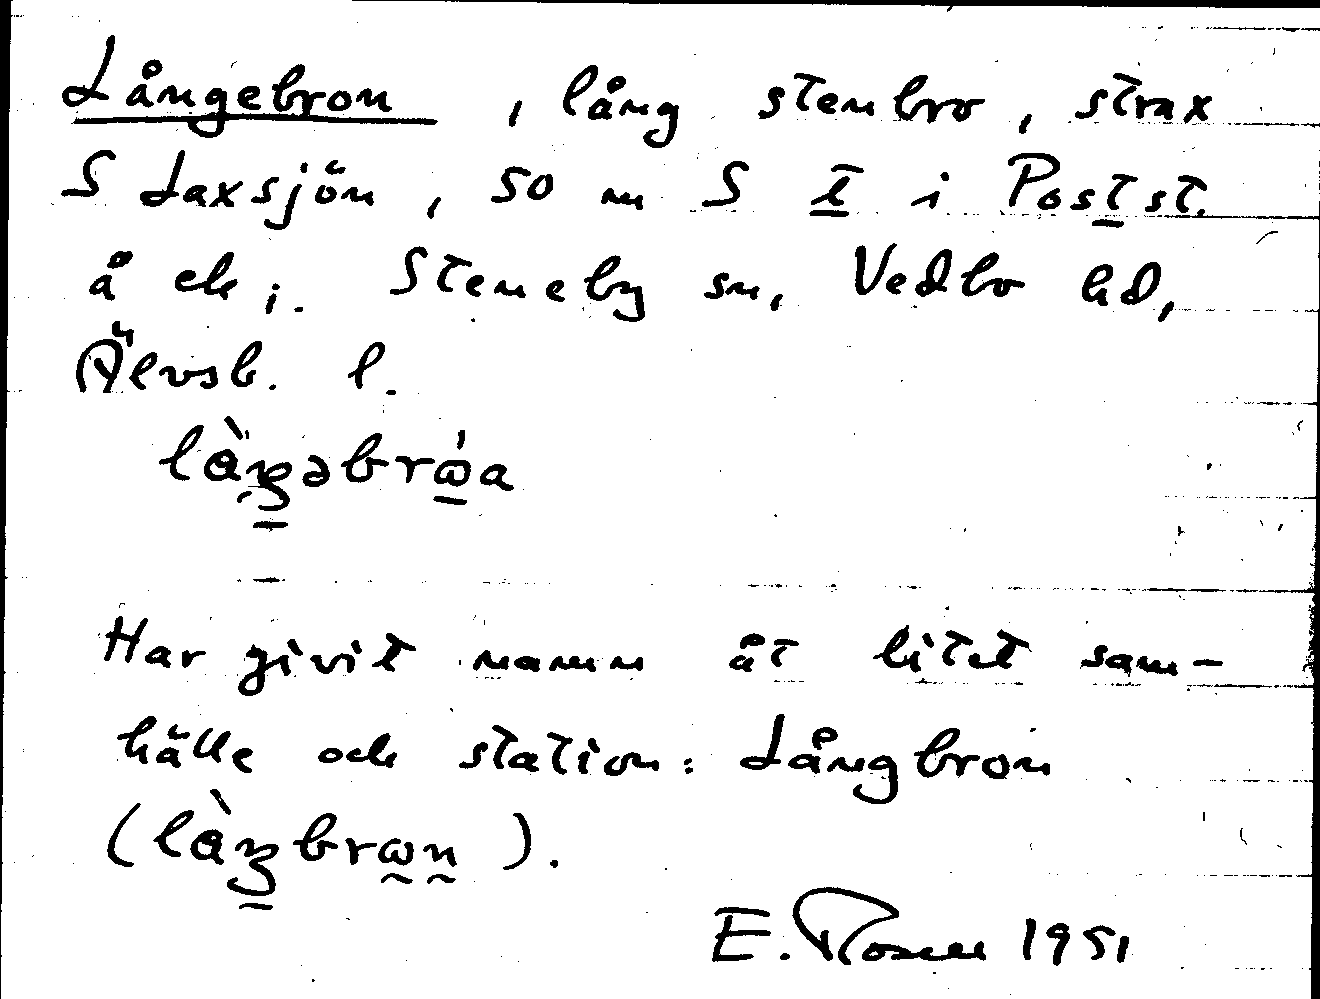 Långebron, lång stenbro, strax
S Laxsjön, 50 m S t i Postst.
å ek. Steneby sn, Vedbo hd,
Älvsb. l.
låŋəbrωa
Har givit namn åt litet sam-
hälle och station: Långbron
(låŋbrωn).
E. Rosell 1951